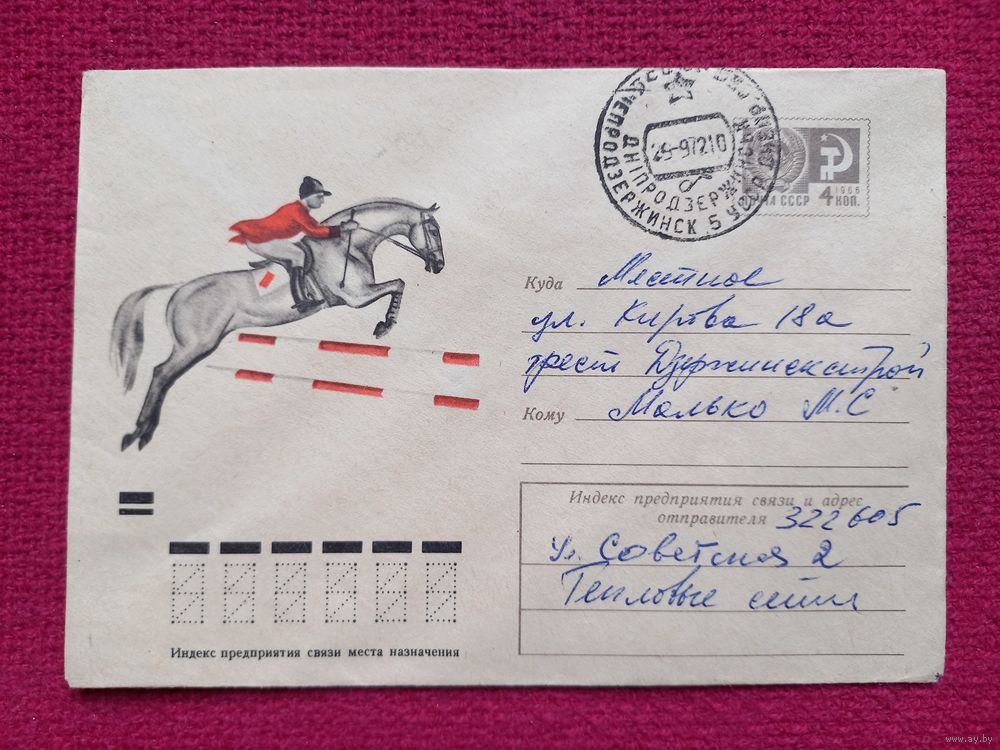 ДНЕПРОДЗЕРЖИНСК 5
ДНІПРОДЗЕРЖИНСЬК
25-97210
1966
ПОЧТА СССР 4 КОП.
Куда Местное
ул. Кирова 18а
трест Дзержинскстрой
Кому Малько М.С
Индекс предприятия связи и адрес
отправителя 322605
Ул. Советская 2
Тепловые сети
Индекс предприятия связи места назначения
www.ay.by